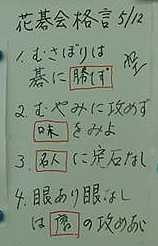 花碁会格言 5/12
1. むさぼりは
碁に勝しず
2. むやみに攻めず
味をみよ
3. 名人に定石なし
4. 眼あり眼なし
は唐の攻めあい